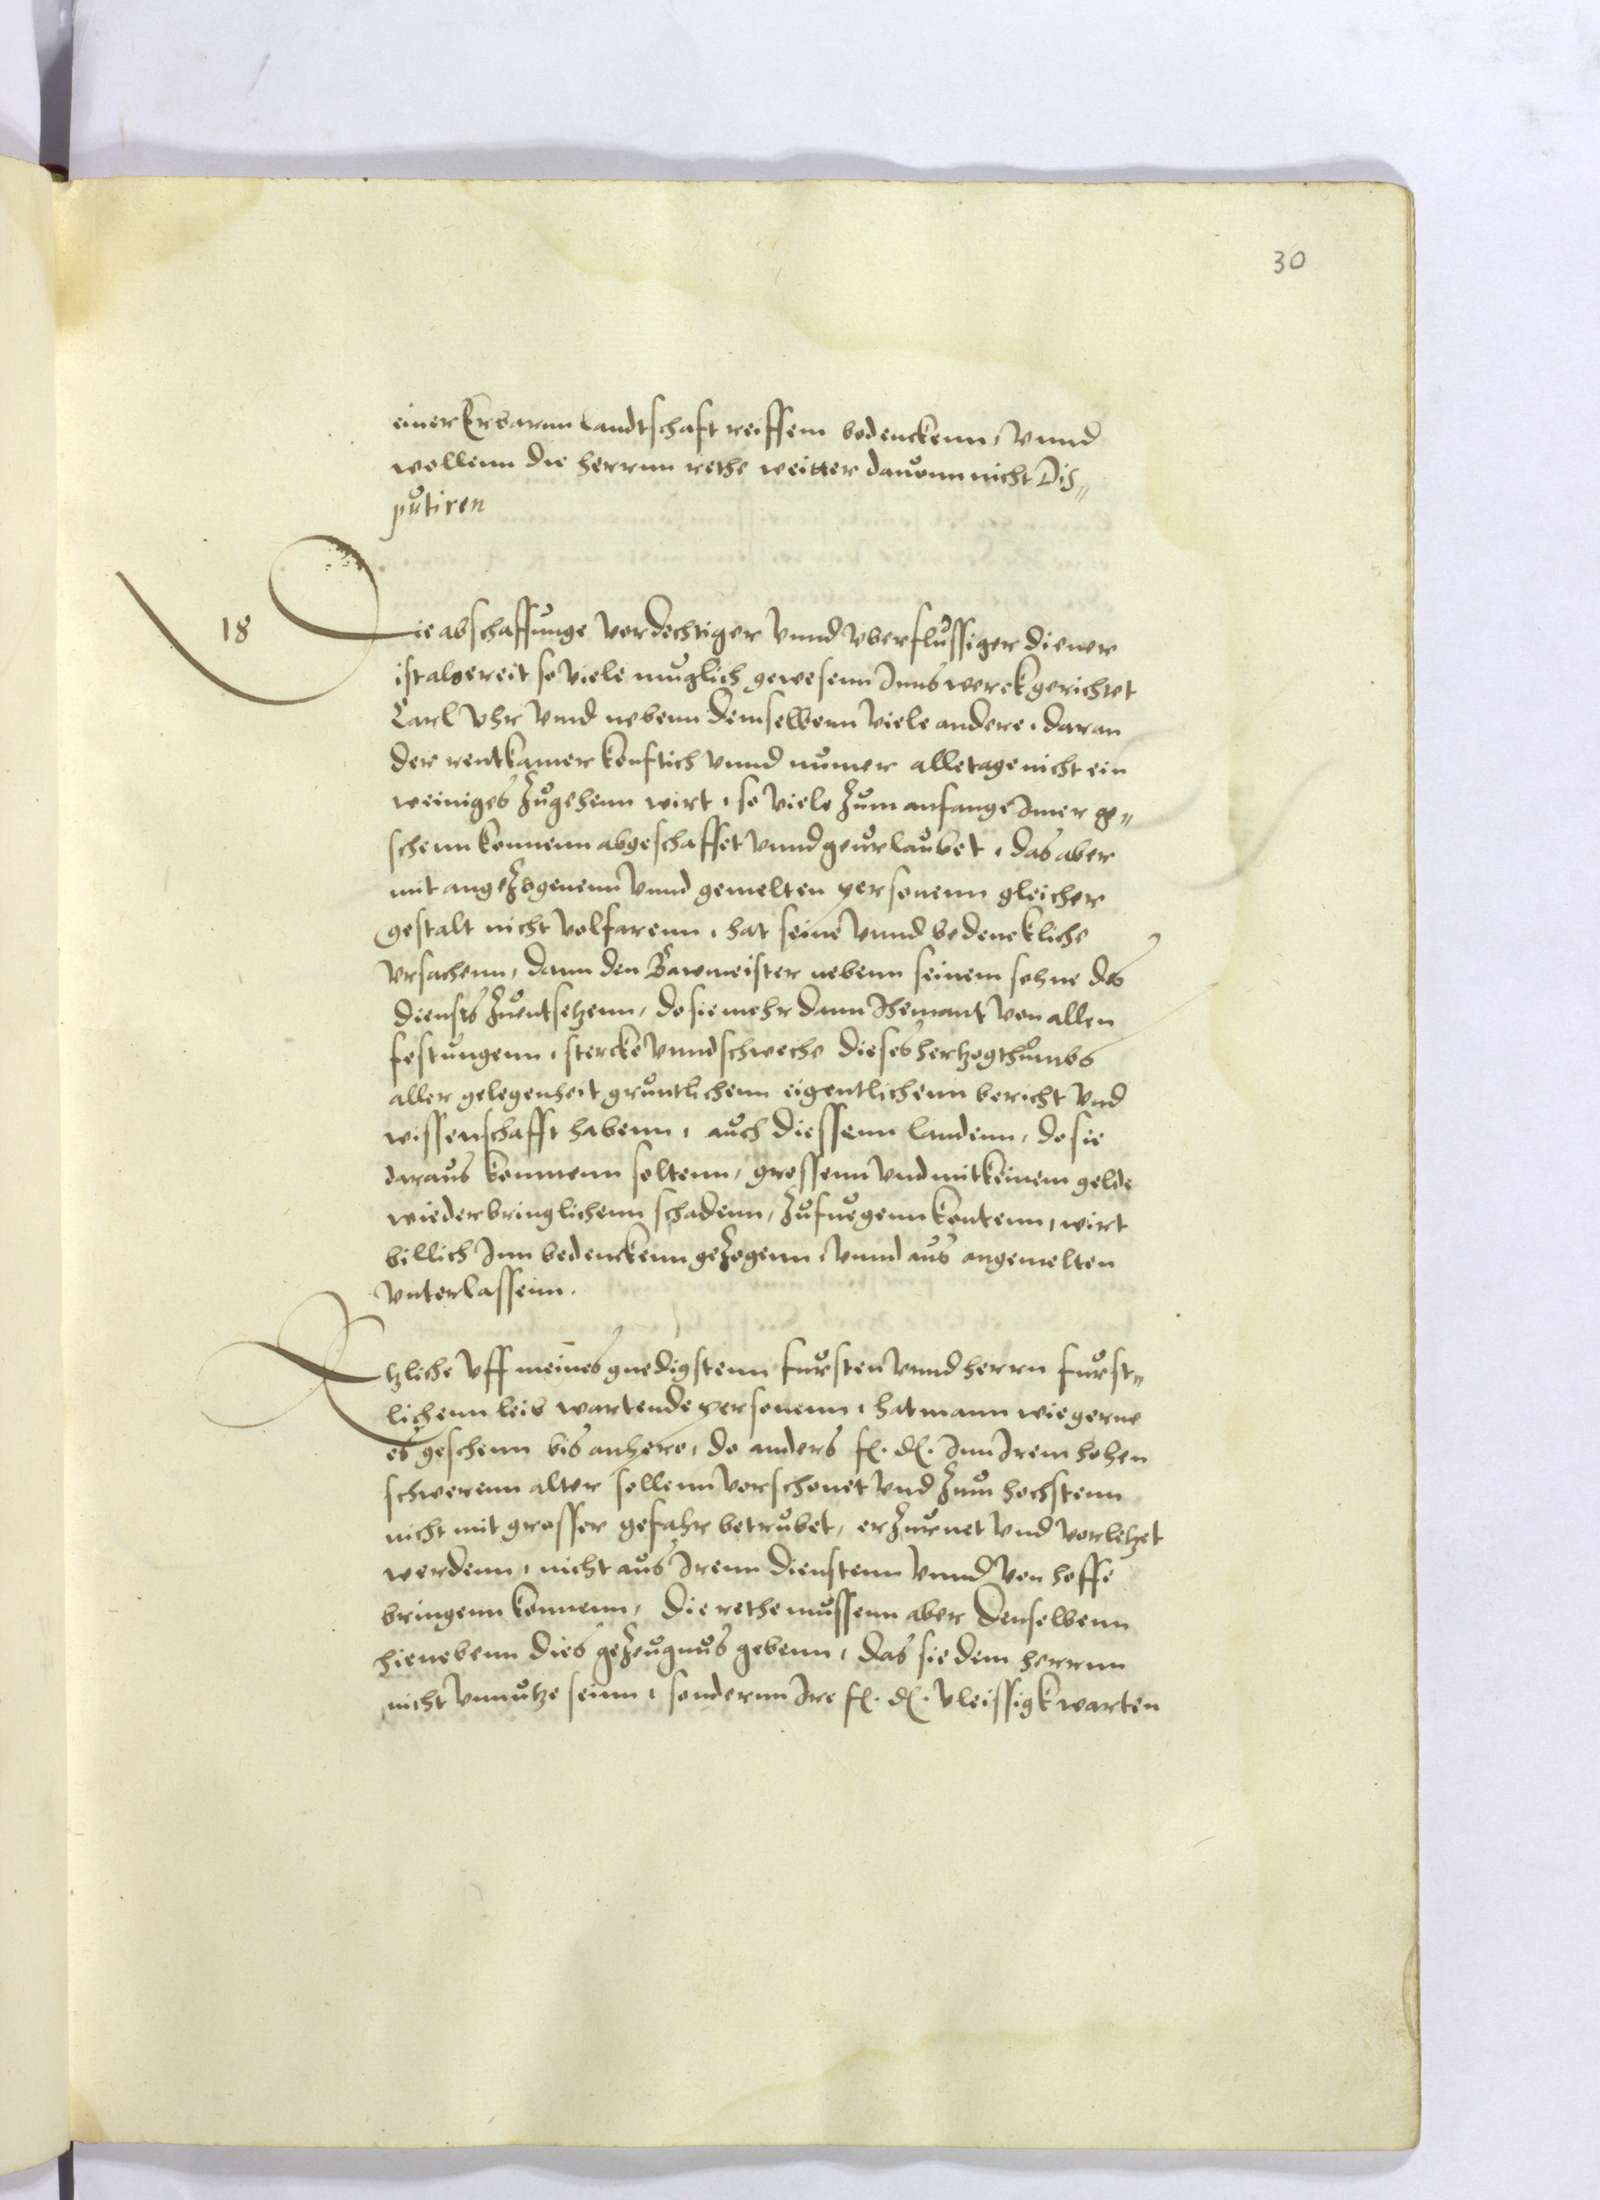 30
einer Erbarnn landtschaft reiffem bedenckenn, vnnd
wollenn die herrnn rethe weitter dauonn nicht Dis¬
putiren
18
Die abschaffunge verdechtiger vnnd vberflussiger diener
ist albereit so viele muglich gewesenn Inns werck gerichtet
Carl Vhr vnnd nebenn demselbenn viele andere, daran
der rentkamer konftich vnnd numer alletage nicht ein
weiniges zugehenn wirt, so viele zum anfange Imer ge¬
schenn konnenn abgeschaffet vnnd geurlaubet, das aber
mit angezogenenn vnnd gemelten personenn gleicher
gestalt nicht volfarenn, hat seine vnnd bedenckliche
vrsachenn, dann den Bawmeister nebenn seinem sohne des
dienstes zuentsetzenn, do sie mehr dann Ihemant von allen
festungenn, stercke vnnd schweche dieses hertzogthumbs
aller gelegenheit gruntlichenn eigentlichenn bericht vnd
wissenschafft habenn, auch diessenn landenn, do sie
daraus kommenn soltenn, grossenn vnd mit keinem gelde
wiederbringlichenn schadenn, zufuegenn kontenn, wirt
billich Inn bedenckenn gezogenn, vnnd aus angemelten
vnterlassenn.
Etzliche vff meines gnedigstenn fursten vnnd herrn furst¬
lichenn leib wartende personenn, hat mann wie gerne
es geschenn bis anhero, do anders f. d. Inn Irem hohen
schwerenn alter sollenn verschonet vnd zum hochstenn
nicht mit grosser gefahr betrubet, erzurnet vnd verletzet
werdenn, nicht aus Irenn dienstenn vnnd von hoffe
bringenn konnenn, die rethe mussenn aber denselbenn
hienebenn dies gezeugnus gebenn, das sie dem herrnn
nicht vnnutze seinn, sondernn Ire f. d. vleissigk warten